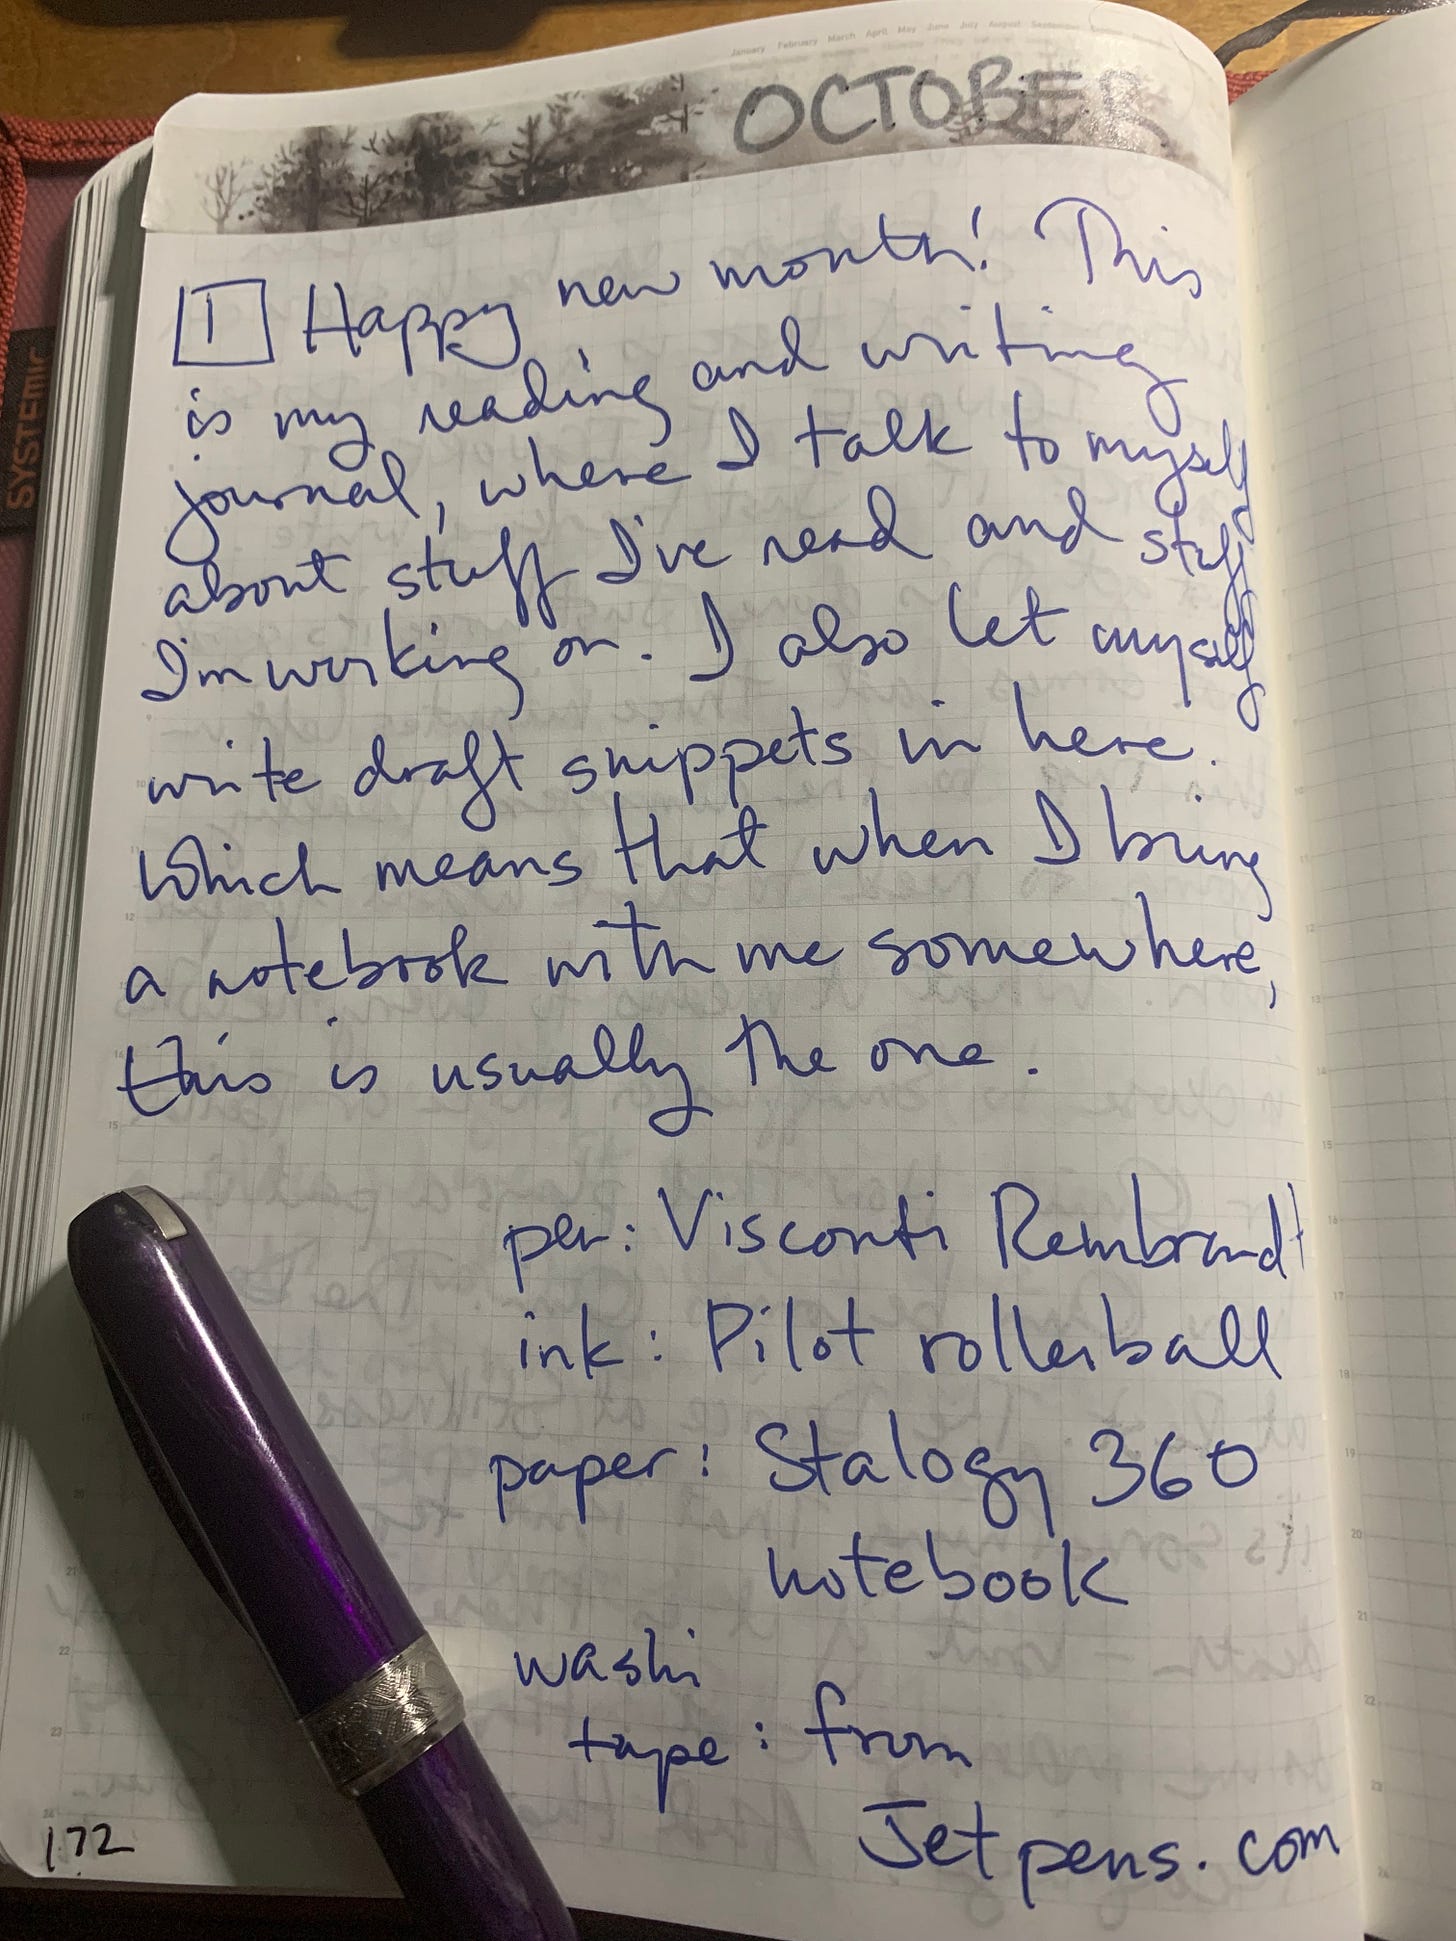 January February March April May June July August September
OCTOBER
1 Happy new month! This
is my reading and writing
journal, where I talk to myself
about stuff I've read and stuff
I'm working on. I also let myself
write draft snippets in here.
Which means that when I bring
a notebook with me somewhere,
this is usually the one.
pen: Visconti Rembrandt
ink: Pilot rollerball
paper: Stalogy 360
notebook
washi
tape: from
Jetpens.com
172
SYSTEMIC
12
15
22
23
13
14
15
16
17
18
19
20
21
22
23
24